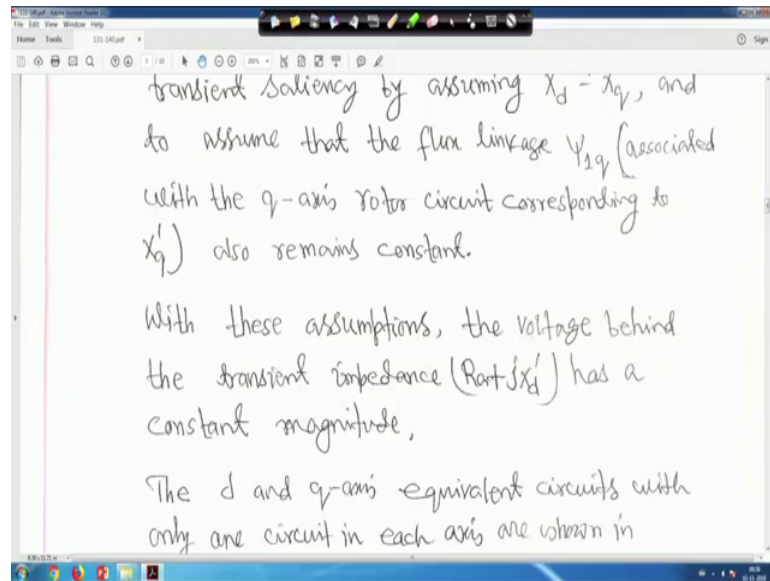 131-140.pdf - Adobe Acrobat Reader DC
File Edit View Window Help
Home Tools 131-140.pdf × Sign
transient saliency by assuming X'd = X'q, and
to assume that the flux linkage Ψ1q (associated
with the q-axis rotor circuit corresponding to
X'q) also remains constant.
With these assumptions, the voltage behind
the transient impedance (Ra+jX'd) has a
constant magnitude.
The d and q-axis equivalent circuits with
only one circuit in each axis are shown in